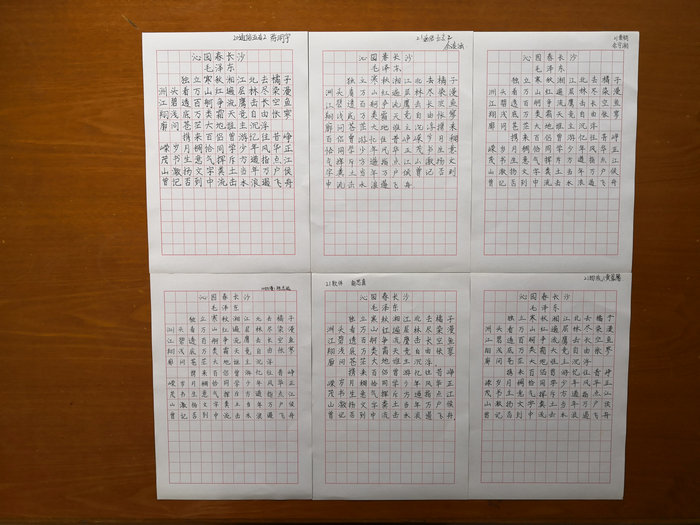 沁园春长沙
毛泽东
独立寒秋湘江北去橘子
洲头看万山红遍层林尽染漫
江碧透百舸争流鹰击长空鱼
翔浅底万类霜天竞自由怅寥
廓问苍茫大地谁主沉浮
携来百侣曾游忆往昔峥
嵘岁月稠恰同学少年风华正
茂书生意气挥斥方遒指点江
山激扬文字粪土当年万户侯
曾记否到中流击水浪遏飞舟
沁园春长沙
毛泽东
独立寒秋湘江北去橘子
洲头看万山红遍层林尽染漫
江碧透百舸争流鹰击长空鱼
翔浅底万类霜天竞自由怅寥
廓问苍茫大地谁主沉浮携来
百侣曾游忆往昔峥嵘岁月稠
恰同学少年风华正茂书生意
气挥斥方遒指点江山激扬文
字粪土当年万户侯曾记否到
中流击水浪遏飞舟
沁园春长沙
毛泽东
独立寒秋湘江北去橘子
洲头看万山红遍层林尽染漫
江碧透百舸争流鹰击长空鱼
翔浅底万类霜天竞自由怅寥
廓问苍茫大地谁主沉浮
携来百侣曾游忆往昔峥
嵘岁月稠恰同学少年风华正
茂书生意气挥斥方遒指点江
山激扬文字粪土当年万户侯
曾记否到中流击水浪遏飞舟
沁园春长沙
毛泽东
独立寒秋湘江北去橘子
洲头看万山红遍层林尽染漫
江碧透百舸争流鹰击长空鱼
翔浅底万类霜天竞自由怅寥
廓问苍茫大地谁主沉浮
携来百侣曾游忆往昔峥
嵘岁月稠恰同学少年风华正
茂书生意气挥斥方遒指点江
山激扬文字粪土当年万户侯
曾记否到中流击水浪遏飞舟
21软件
沁园春长沙
毛泽东
独立寒秋湘江北去橘子
洲头看万山红遍层林尽染漫
江碧透百舸争流鹰击长空鱼
翔浅底万类霜天竞自由怅寥
廓问苍茫大地谁主沉浮
携来百侣曾游忆往昔峥
嵘岁月稠恰同学少年风华正
茂书生意气挥斥方遒指点江
山激扬文字粪土当年万户侯
曾记否到中流击水浪遏飞舟
沁园春长沙
毛泽东
独立寒秋湘江北去橘子
洲头看万山红遍层林尽染漫
江碧透百舸争流鹰击长空鱼
翔浅底万类霜天竞自由怅寥
廓问苍茫大地谁主沉浮
携来百侣曾游忆往昔峥
嵘岁月稠恰同学少年风华正
茂书生意气挥斥方遒指点江
山激扬文字粪土当年万户侯
曾记否到中流击水浪遏飞舟